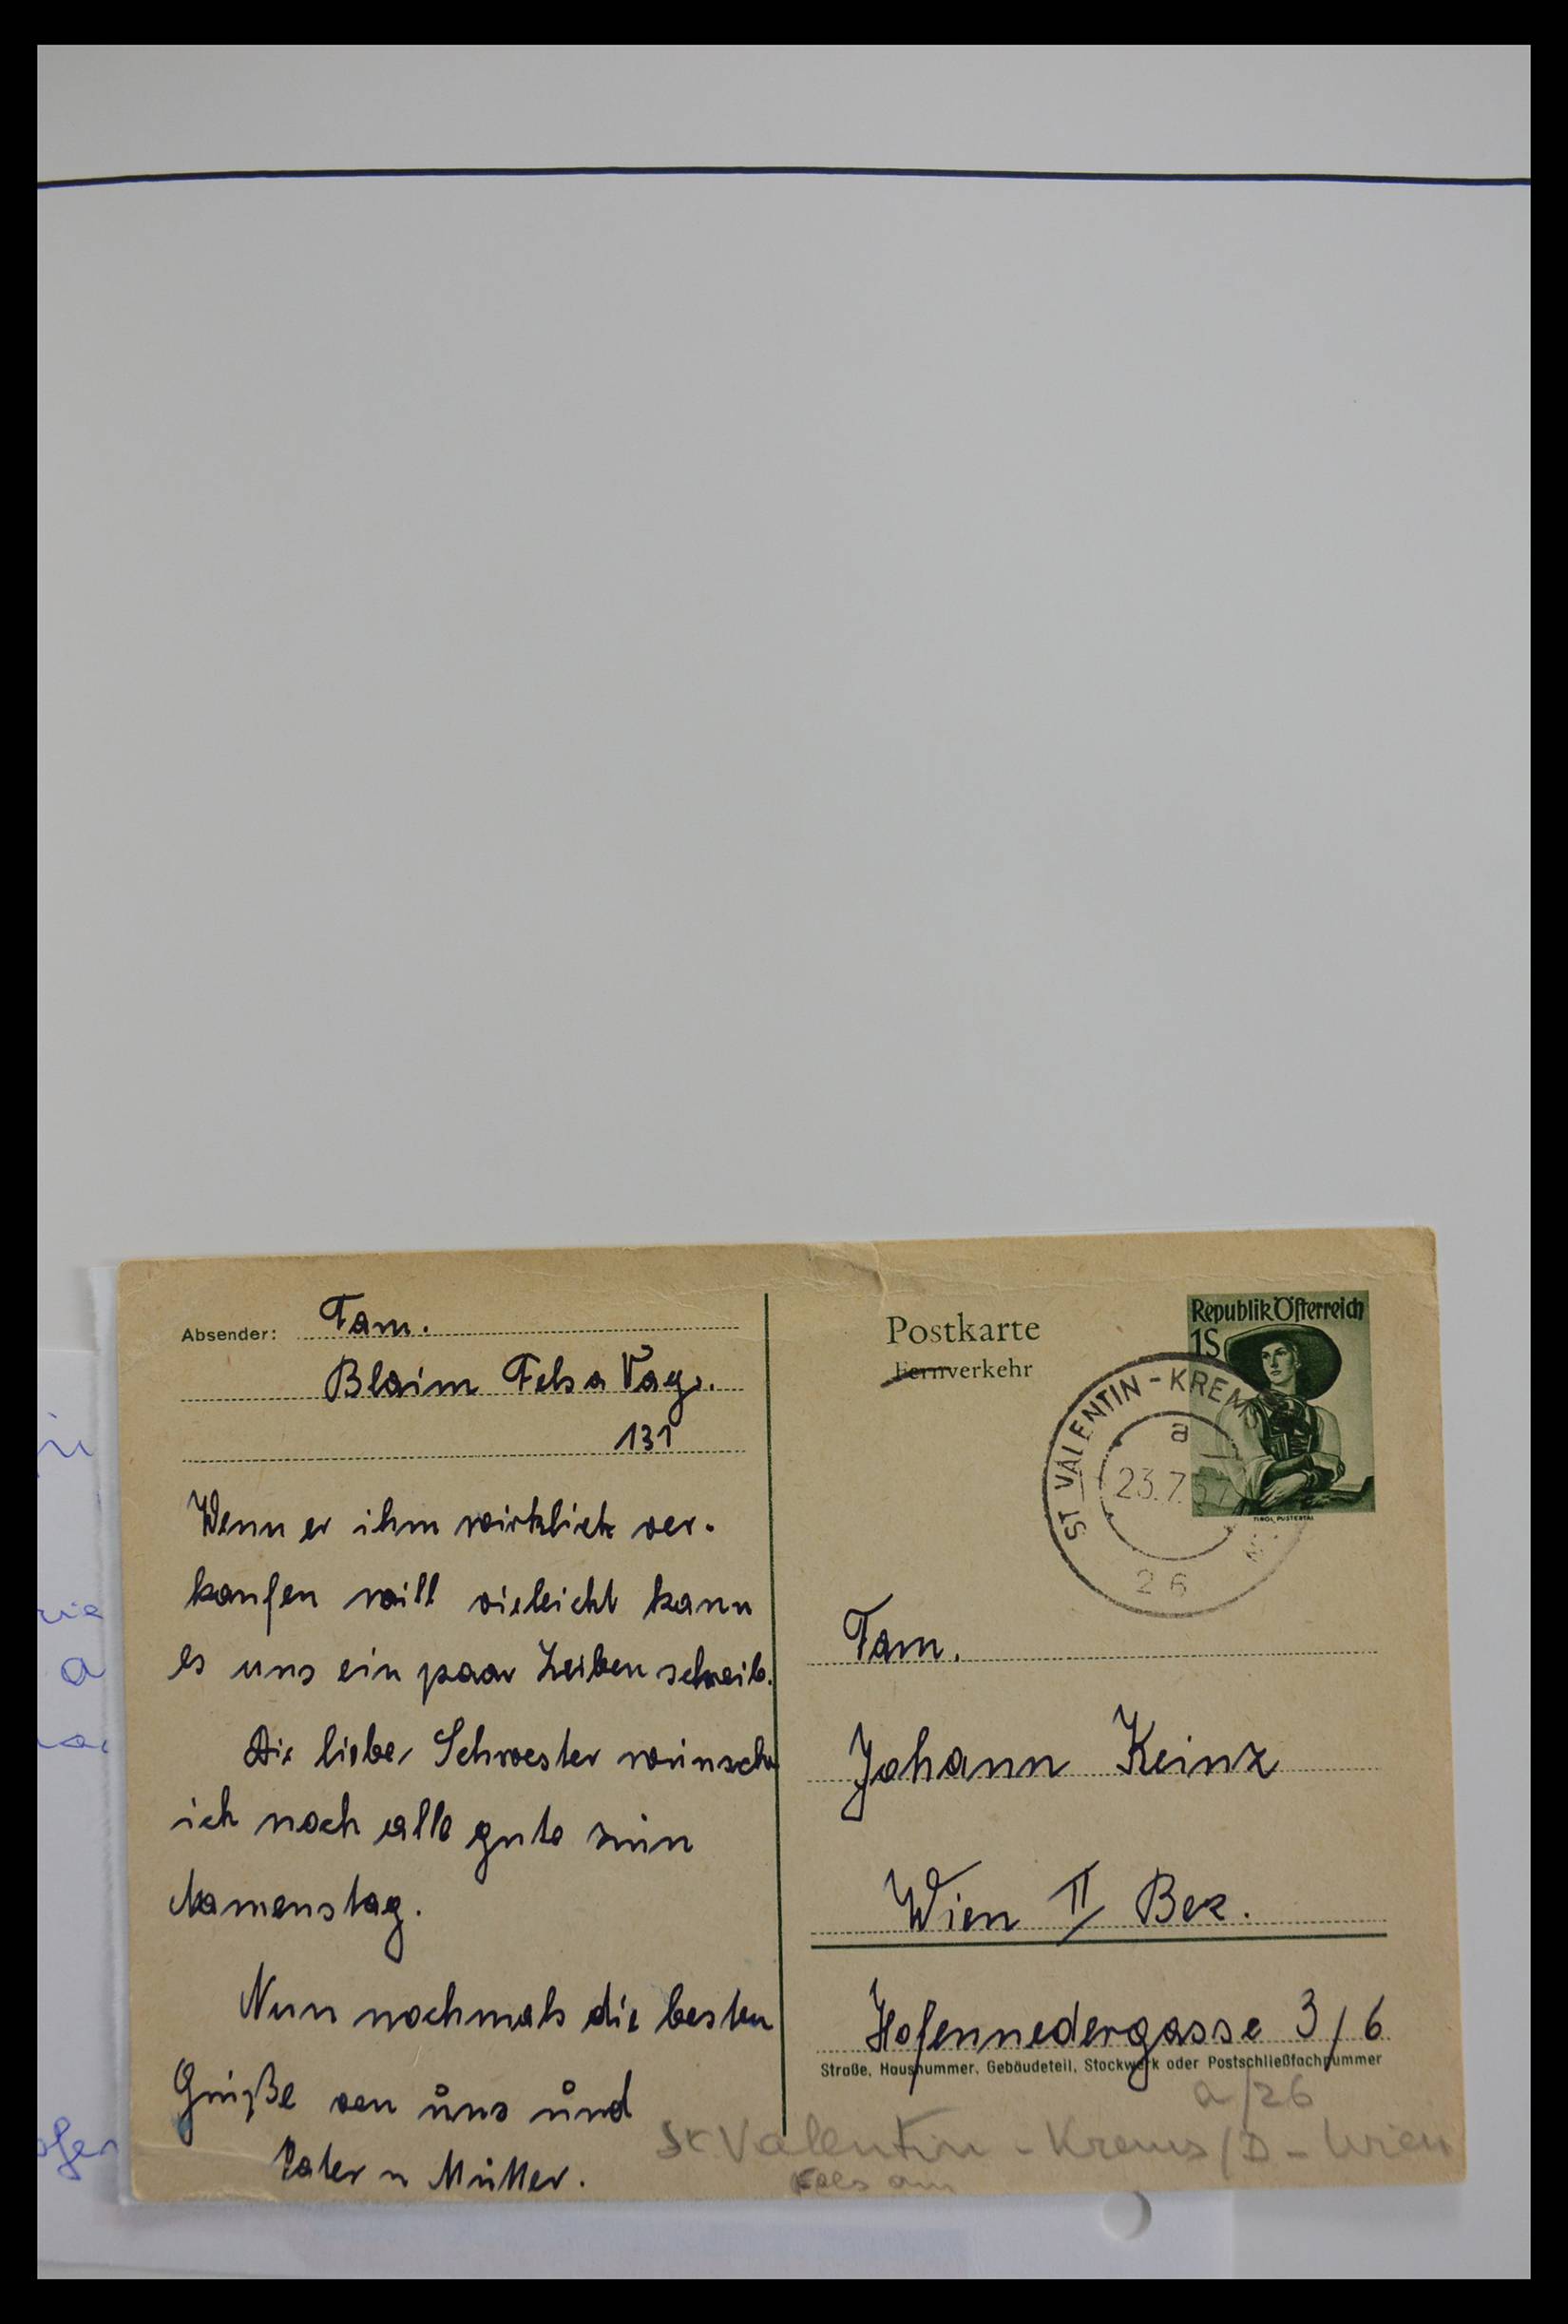 Absender: Fam.
Blaim Fels a Wag.
131
Wenn er ihm wirklich ver-
kaufen will vieleicht kann
es uns ein paar Zeiben schreib.
Dir liebe Schwester wünsche
ich noch alle gute zum
Namenstag.
Nun nochmals die besten
Grüße von uns und
Vater u Mutter.
Postkarte
Fernverkehr
Republik Österreich
1S
TIROL, PUSTERTAL
ST VALENTIN - KREMS
a
23.7.57
26
Fam.
Johann Keinz
Wien II/ Bez.
Hofennedergasse 3/6
Straße, Hausnummer, Gebäudeteil, Stockwerk oder Postschließfachnummer
a/26
St Valentin - Krems/D - Wien
Fels am